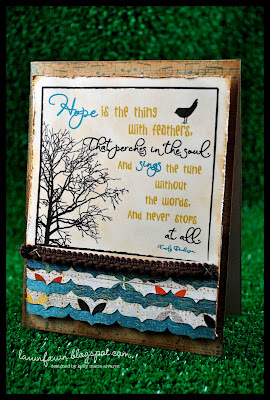 Hope is the thing
with feathers,
That perches in the soul
And sings the tune
without
the words,
And never stops
at all.
Emily Dickinson
lawnfawn.blogspot.com
designed by